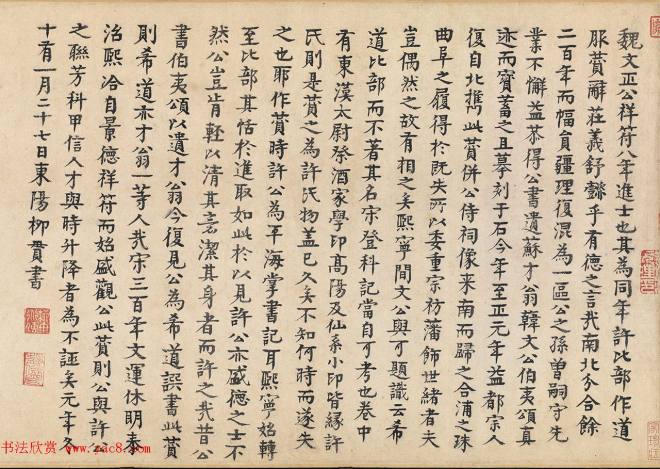 魏文正公祥符八年進士也其為同年許比部作道
服贊辭莊義舒懿乎有德之言哉南北分合餘
二百年而幅員疆理復混為一區公之孫曾嗣守先
業不懈益恭得公書遺蘇才翁韓文公伯夷頌真
迹而寶蓄之且摹刻于石今年至正元年益都宗人
復自北攜此贊併公侍祠像来南而歸之合浦之珠
曲阜之履得於既失所以委重宗祊藩飾世緒者夫
豈偶然之故有相之矣熙寧間文公與可題識云希
道比部而不著其名宋登科記當自可考也卷中
有東漢太尉祭酒家學印高陽及仙系小印皆緣許
氏則是贊之為許氏物蓋已久矣不知何時而遂失
之也耶作贊時許公為平海掌書記耳熙寧始轉
至比部其恬於進取如此於以見許公亦盛德之士不
然公豈肯輕以清其意潔其身者而許之哉昔公
書伯夷頌以遺才翁今復見公為希道譔書此贊
則希道亦才翁一等人哉宋三百年文運休明泰
治熙洽自景德祥符而始盛觀公此贊則公與許公
之聯芳科甲信人才與時升降者為不誣矣元年冬
十有一月二十七日東陽柳貫書
书法欣赏
www.yac8.com